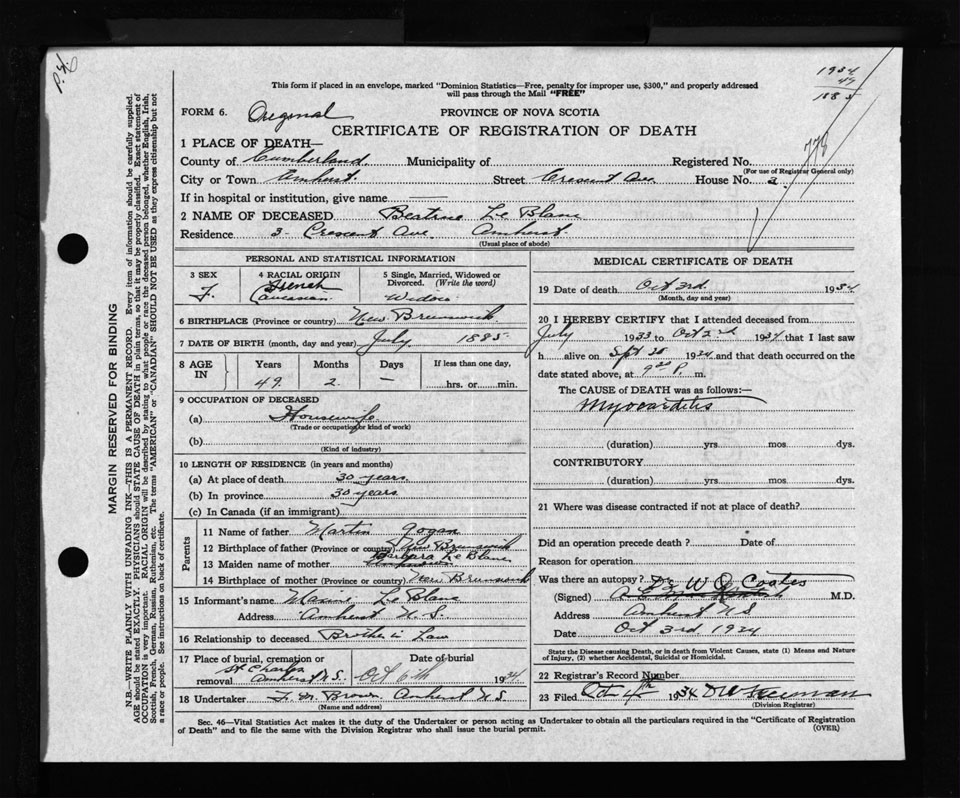 P.4.
1934
49
1885
This form if placed in an envelope, marked "Dominion Statistics—Free, penalty for improper use, $300," and properly addressed
will pass through the Mail "FREE"
FORM 6. Original PROVINCE OF NOVA SCOTIA
CERTIFICATE OF REGISTRATION OF DEATH
778
1 PLACE OF DEATH—
County of Cumberland Municipality of Registered No.
(For use of Registrar General only)
City or Town Amherst. Street Crescent Ave House No. 3.
If in hospital or institution, give name
2 NAME OF DECEASED Beatrice Le Blanc
Residence 3 - Crescent Ave. Amherst.
(Usual place of abode)
PERSONAL AND STATISTICAL INFORMATION
3 SEX 4 RACIAL ORIGIN 5 Single, Married, Widowed or Divorced. (Write the word)
F. French Caucasian. Widow
6 BIRTHPLACE (Province or country) New Brunswick
7 DATE OF BIRTH (month, day and year) July 1885.
8 AGE IN Years Months Days If less than one day,
49. 2. — hrs. or min.
9 OCCUPATION OF DECEASED
(a) Housewife
(Trade or occupation or kind of work)
(b)
(Kind of industry)
10 LENGTH OF RESIDENCE (in years and months)
(a) At place of death 30 years.
(b) In province 30 years
(c) In Canada (if an immigrant)
Parents
11 Name of father Martin Gogan
12 Birthplace of father (Province or country) New Brunswick
13 Maiden name of mother Barbara Le Blanc
14 Birthplace of mother (Province or country) New Brunswick
15 Informant's name Le Blanc
Address Amherst N.S.
16 Relationship to deceased Brother in Law
17 Place of burial, cremation or removal Date of burial
St Charles Amherst N.S. Oct 6th 1934
18 Undertaker F. M. Brown Amherst N S
(Name and address)
MEDICAL CERTIFICATE OF DEATH
19 Date of death Oct 3rd 1934
(Month, day and year)
20 I HEREBY CERTIFY that I attended deceased from
July 1933 to Oct 2nd 1934 that I last saw
h alive on Sept 30 1934 and that death occurred on the
date stated above, at 9 P. m.
The CAUSE OF DEATH was as follows:—
Myocarditis
(duration) yrs. mos. dys.
CONTRIBUTORY
(duration) yrs. mos. dys.
21 Where was disease contracted if not at place of death?
Did an operation precede death? Date of
Reason for operation
Was there an autopsy? Dr W. Coates
(Signed) M.D.
Address Amherst NS
Date Oct 3rd 1934
State the Disease causing Death, or in death from Violent Causes, state (1) Means and Nature
of Injury, (2) whether Accidental, Suicidal or Homicidal.
22 Registrar's Record Number
23 Filed Oct 4th 1934
(Division Registrar)
Sec. 46—Vital Statistics Act makes it the duty of the Undertaker or person acting as Undertaker to obtain all the particulars required in the "Certificate of Registration
of Death" and to file the same with the Division Registrar who shall issue the burial permit. (OVER)
MARGIN RESERVED FOR BINDING
N.B.—WRITE PLAINLY WITH UNFADING INK—THIS IS A PERMANENT RECORD. Every item of information should be carefully supplied.
AGE should be stated EXACTLY. PHYSICIANS should STATE CAUSE OF DEATH in plain terms, so that it may be properly classified. Exact statement of
OCCUPATION is very important. RACIAL ORIGIN will be described by stating to what people or race the deceased person belonged, whether English, Irish,
Scottish, French, German, Russian, Ruthenian, etc. The terms "AMERICAN" or "CANADIAN" SHOULD NOT BE USED as they express citizenship but not
a race or people. See instructions on back of certificate.